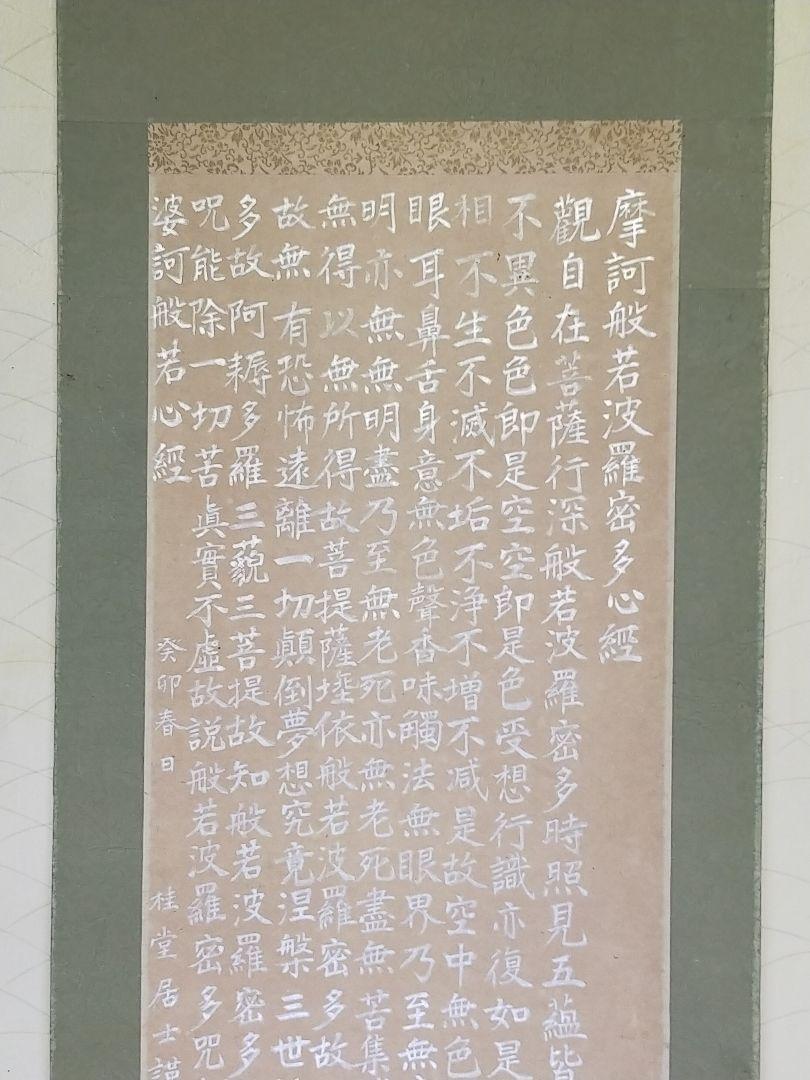 摩訶般若波羅密多心經
觀自在菩薩行深般若波羅密多時照見五蘊皆
不異色色即是空空即是色受想行識亦復如是
相不生不滅不垢不浄不增不減是故空中無色
眼耳鼻舌身意無色聲香味觸法無眼界乃至無
明亦無無明盡乃至無老死亦無老死盡無苦集
無得以無所得故菩提薩埵依般若波羅密多故
故無有恐怖遠離一切顛倒夢想究竟涅槃三世
多故阿耨多羅三藐三菩提故知般若波羅密多
呪能除一切苦眞實不虛故説般若波羅密多呪
婆訶般若心經
癸卯春日
桂堂居士謹